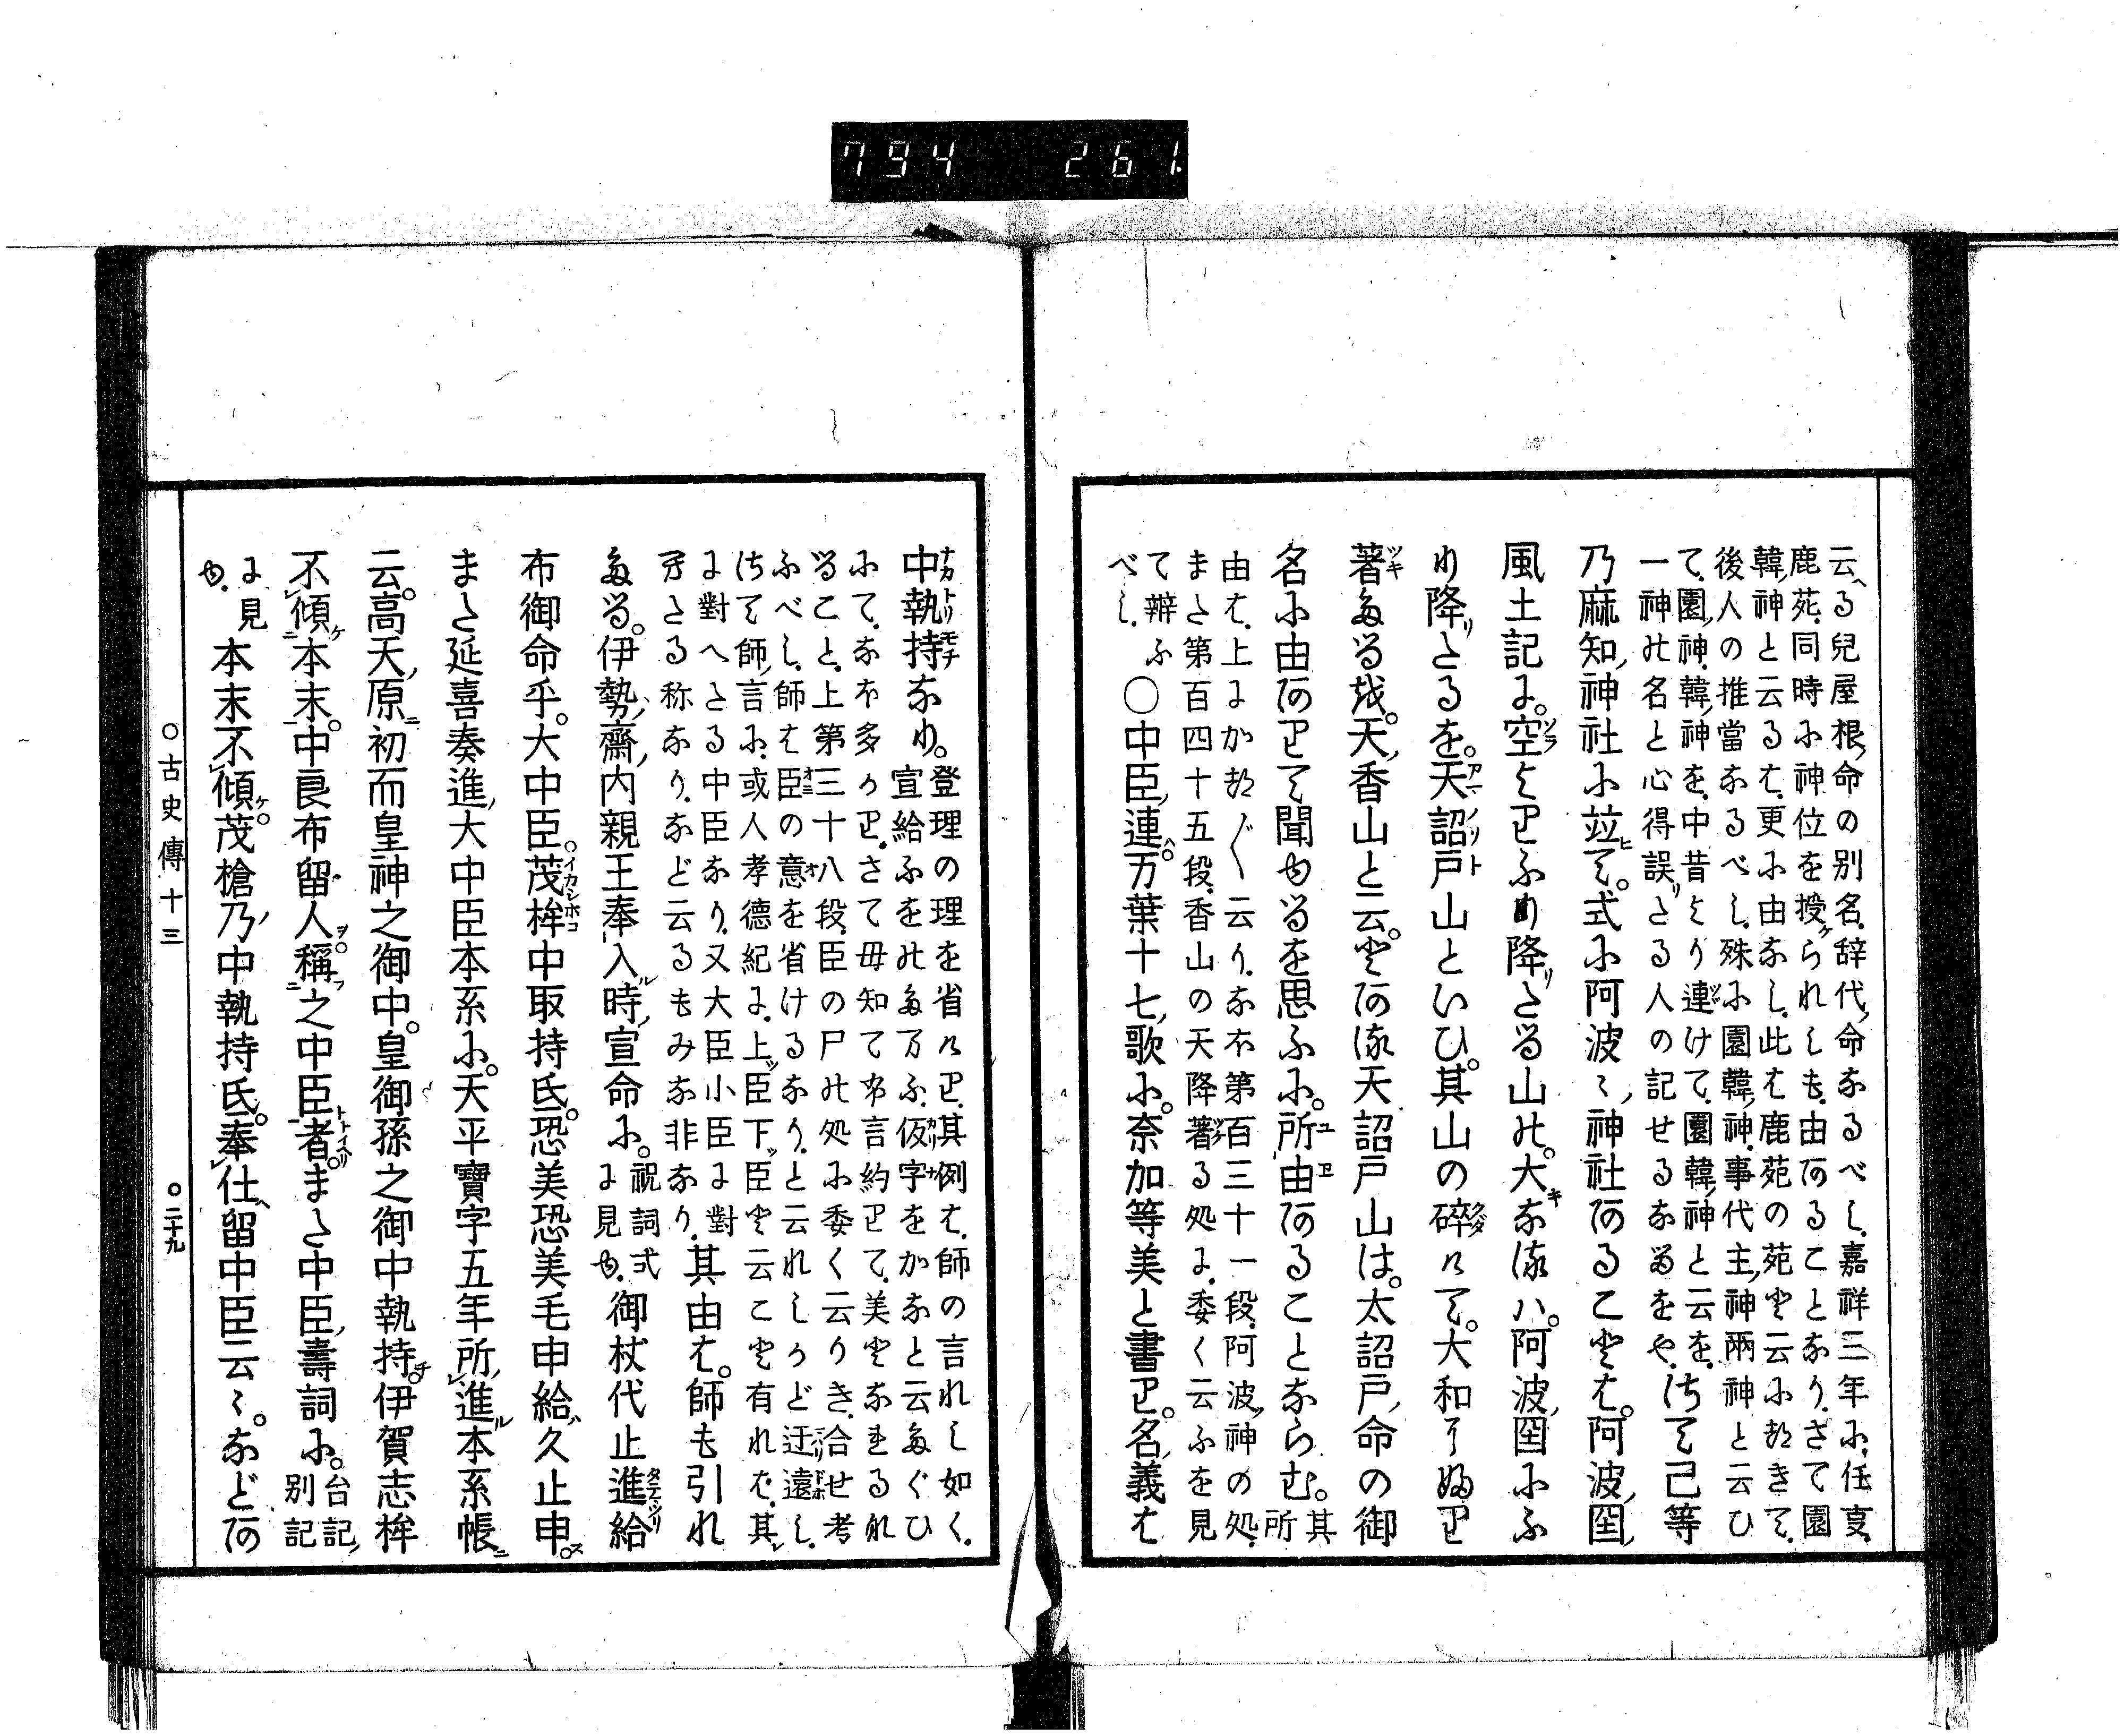 794 261
云る兒屋根命の別名辞代命なるべし嘉祥三年に任叓
鹿苑同時に神位を授られしも由あることなりさて園
韓神と云るは更に由なし此は鹿苑の苑と云に就きて
後人の推當なるべし殊に園韓神事代主神兩神と云ひ
て園神韓神を中昔より連けて園韓神と云を
一神の名と心得誤りたる人の記せるなるをや
さて己等
乃麻知神社に竝て式に阿波々神社あること は阿波國
風土記に空よりふり降りたる山の大なるハ阿波國にふ
り降りたるを天詔戸山といひ其山の碎けて大和にふり
著たるを天香山と云とある天詔戸山は太詔戸命の御
名に由ありて聞ゆるを思ふに所由あることならむ
其所
由は上にかつ〴〵云りなほ第百三十一段阿波神の処
また第百四十五段香山の天降著る処に委く云ふを見
て辨ふ
べし
〇中臣連万葉十七歌に奈加等美と書り名義は
中執持なり
登理の理を省けり其例は師の言れし如く
宣給ふをのたまふ仮字をかなと云たぐひ
にてなほ多かりさて毋知て布言約りて美となれるれ
ること上第三十八段臣の尸の処に委く云りき合せ考
ふべし師は臣の意を省けるなりと云れしかど迂遠し
さて師言に或人孝德紀に上臣下臣と云こと有れば其
に對へたる中臣なり又大臣小臣に對
へたる称なりなど云るもみな非なり
其由は師も引れ
たる伊勢齋内親王奉入時宣命に
祝詞式
に見ゆ
御杖代止進給
布御命乎大中臣茂桙中取持氐恐美恐美毛申給久止申
また延喜奏進大中臣本系に天平寶字五年所進本系帳
云高天原初而皇神之御中皇御孫之御中執持伊賀志桙
不傾本末中良布留人稱之中臣者また中臣壽詞に
台記
別記
に見
ゆ
本末不傾茂槍乃中執持氐奉仕留中臣云々などあ
〇古史傳十三 〇二十九